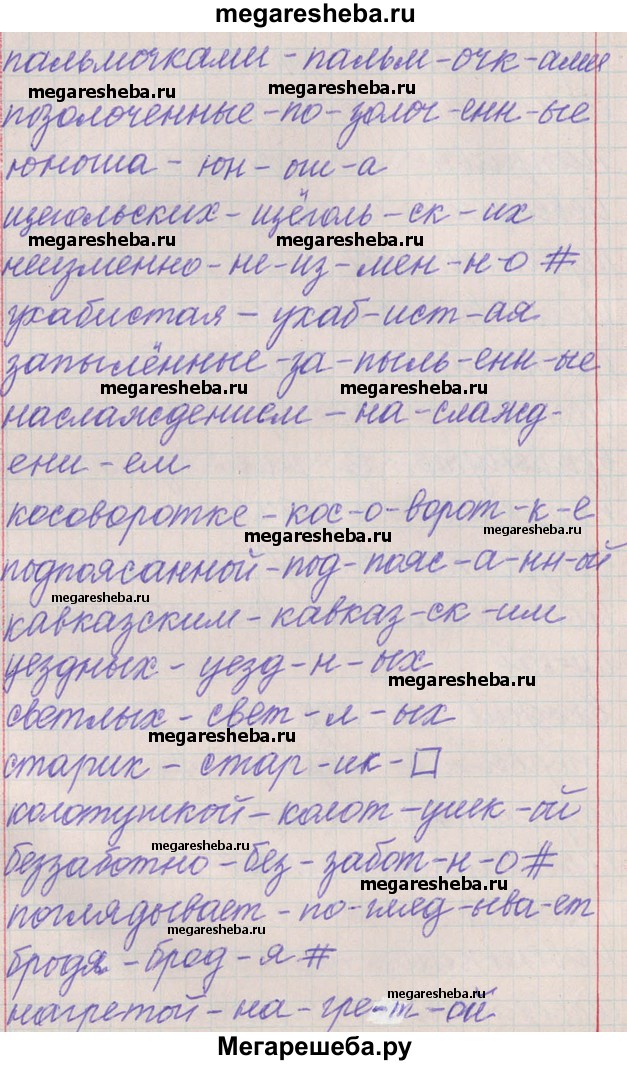 megaresheba.ru
пальмочками - пальм - очк - ами
megaresheba.ru
megaresheba.ru
позолоченные - по - золоч - енн - ые
юноша - юн - ош - а
щегольских - щёголь - ск - их
megaresheba.ru
megaresheba.ru
неизменно - не - из - мен - н - о #
ухабистая - ухаб - ист - ая
запылённые - за - пыль - енн - ые
megaresheba.ru
megaresheba.ru
наслаждением - на - слажд -
ени - ем
косоворотке - кос - о - ворот - к - е
megaresheba.ru
megaresheba.ru
подпоясанной - под - пояс - а - нн - ой
megaresheba.ru
кавказским - кавказ - ск - им
уездных - уезд - н - ых
megaresheba.ru
светлых - свет - л - ых
megaresheba.ru
старик - стар - ик - □
колотушкой - колот - ушк - ой
megaresheba.ru
беззаботно - без - забот - н - о #
megaresheba.ru
поглядывает - по - гляд - ыва - ет
megaresheba.ru
бродя - брод - я #
megaresheba.ru
нагретой - на - гре - т - ой
Мегарешеба.ру